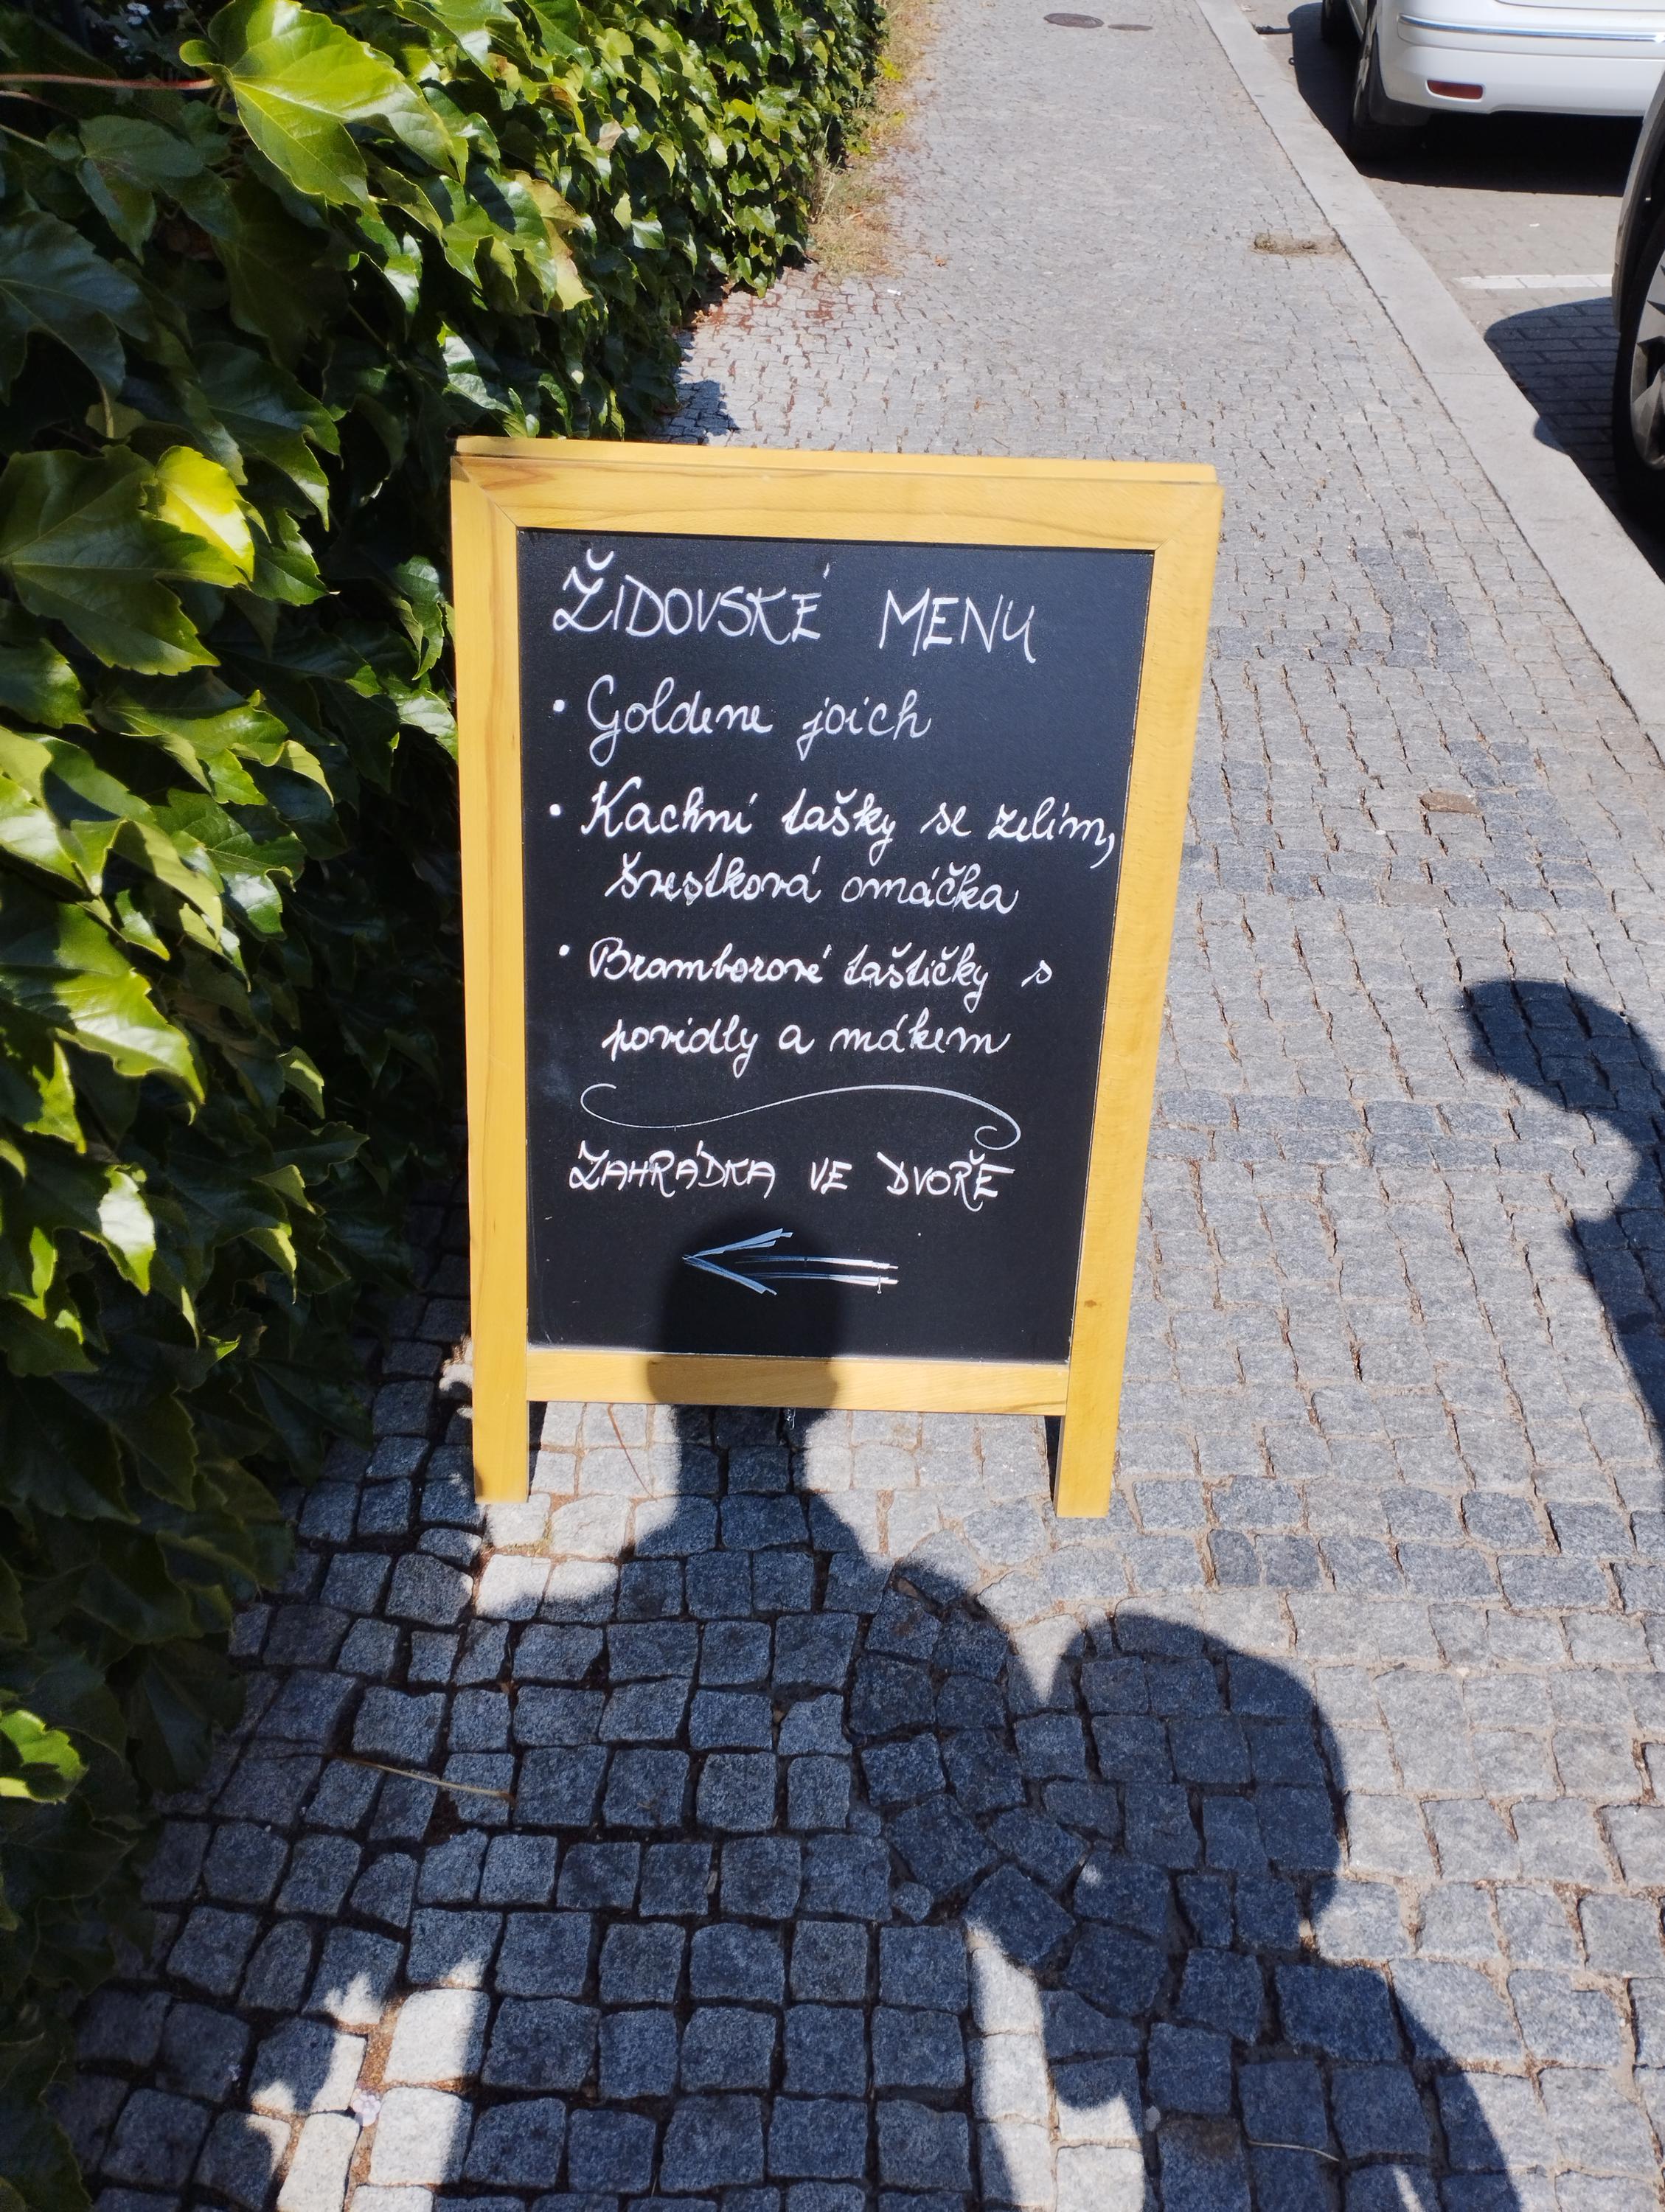 ŽIDOVSKÉ MENU
• Goldene joich
• Kachní tašky se zelím,
švestková omáčka
• Bramborové taštičky s
povidly a mákem
ZAHRÁDKA VE DVOŘE